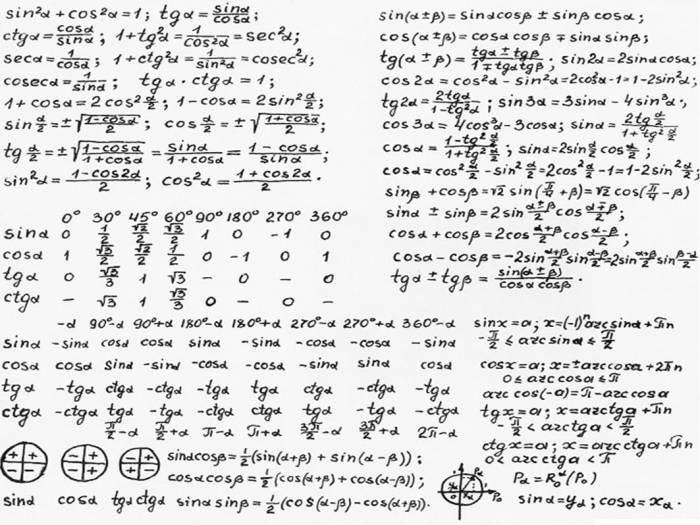 sin²α + cos²α = 1; tgα = sinα/cosα;
ctgα = cosα/sinα; 1 + tg²α = 1/cos²α = sec²α;
secα = 1/cosα; 1 + ctg²α = 1/sin²α = cosec²α;
cosecα = 1/sinα; tgα · ctgα = 1;
1 + cosα = 2cos² α/2; 1 - cosα = 2sin² α/2;
sin α/2 = ±√(1-cosα)/2; cos α/2 = ±√(1+cosα)/2;
tg α/2 = ±√(1-cosα)/(1+cosα) = sinα/(1+cosα) = (1-cosα)/sinα;
sin²α = (1-cos2α)/2; cos²α = (1+cos2α)/2.
0° 30° 45° 60° 90° 180° 270° 360°
sinα 0 1/2 √2/2 √3/2 1 0 -1 0
cosα 1 √3/2 √2/2 1/2 0 -1 0 1
tgα 0 √3/3 1 √3 - 0 - 0
ctgα - √3 1 √3/3 0 - 0 -
sin(α±β) = sinαcosβ ± sinβcosα;
cos(α±β) = cosαcosβ ∓ sinαsinβ;
tg(α±β) = (tgα ± tgβ)/(1 ∓ tgαtgβ); sin2α = 2sinαcosα;
cos2α = cos²α - sin²α = 2cos²α - 1 = 1 - 2sin²α;
tg2α = 2tgα/(1-tg²α); sin3α = 3sinα - 4sin³α;
cos3α = 4cos³α - 3cosα; sinα = 2tg α/2 / (1+tg² α/2)
cosα = (1-tg² α/2)/(1+tg² α/2); sinα = 2sin α/2 cos α/2;
cosα = cos² α/2 - sin² α/2 = 2cos² α/2 - 1 = 1 - 2sin² α/2;
sinβ + cosβ = √2 sin(π/4 + β) = √2 cos(π/4 - β)
sinα ± sinβ = 2sin (α±β)/2 cos (α∓β)/2;
cosα + cosβ = 2cos (α+β)/2 cos (α-β)/2;
cosα - cosβ = -2sin (α+β)/2 sin (α-β)/2 = 2sin (α+β)/2 sin (β-α)/2
tgα ± tgβ = sin(α±β)/cosαcosβ.
-α 90°-α 90°+α 180°-α 180°+α 270°-α 270°+α 360°-α
sinα -sinα cosα cosα sinα -sinα -cosα -cosα -sinα
cosα cosα sinα -sinα -cosα -cosα -sinα sinα cosα
tgα -tgα ctgα -ctgα -tgα tgα ctgα -ctgα -tgα
ctgα -ctgα tgα -tgα -ctgα ctgα tgα -tgα -ctgα
π/2-α π/2+α π-α π+α 3π/2-α 3π/2+α 2π-α
sinx = a; x = (-1)ⁿ arcsina + πn
-π/2 ≤ arcsina ≤ π/2
cosx = a; x = ±arccosa + 2πn
0 ≤ arccosa ≤ π
arccos(-a) = π - arccosa
tgx = a; x = arctga + πn
-π/2 < arctga < π/2
ctgx = a; x = arcctga + πn
0 < arcctga < π
+ + - -
- + - +
- + + -
sinα cosα tgα ctgα
sinαcosβ = 1/2(sin(α+β) + sin(α-β));
cosαcosβ = 1/2(cos(α+β) + cos(α-β));
sinαsinβ = 1/2(cos(α-β) - cos(α+β)).
Pα
P₀
Pα = R₀^α(P₀)
sinα = yα; cosα = xα.